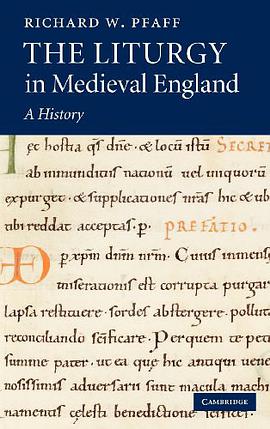 RICHARD W. PFAFF
THE LITURGY
in Medieval England
A History
ec hostia qs dñe. & locū istū SECRET
ab inmunditiis nationū uel iniquorū
expurget. & supplicationes nr̄as hic & ub
tibi reddat acceptas. p. PREFATIO.
p xpm̄ dnm̄ nrm̄. Cuius immens
uniuersa est corrupta purgar
lapsa restituere. sordes abstergere. pollut
reconciliando sc̄ificare. Perquem te pet
summe pater. ut ea que hic antiqui uene
nosissimi aduersarii sunt macula machi
namentis celesti benedictione
CAMBRIDGE